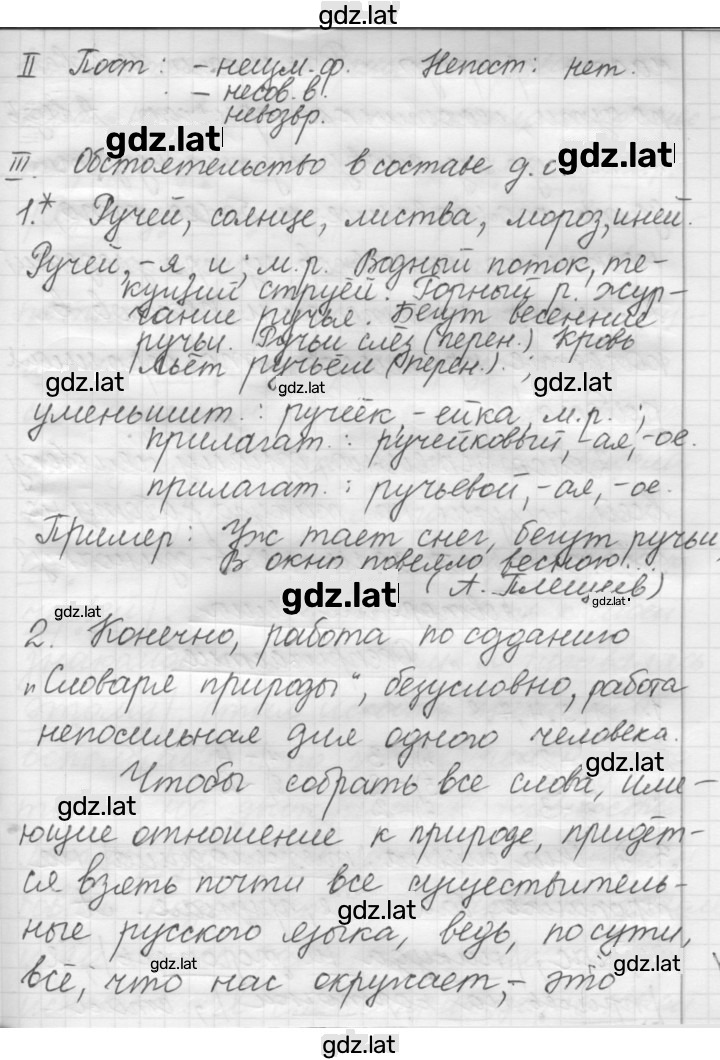 gdz.lat
II Пост: - неизм. ф. Непост: нет.
- несов. в.
невозвр.
gdz.lat
III. Обстоятельство в составе д.о
gdz.lat
1.* Ручей, солнце, листва, мороз, иней.
Ручей, -я, и; м.р. Водный поток, те-
кущий струёй. Горный р. Жур-
чание ручья. Бегут весенние
ручьи. Ручьи слёз (перен.) Кровь
льёт ручьём (перен.). ;
gdz.lat gdz.lat gdz.lat
уменьшит.: ручеёк, -ейка, м.р. ;
прилагат.: ручейковый, -ая, -ое.
прилагат.: ручьевой, -ая, -ое.
Пример: Уж тает снег, бегут ручьи,
В окно повеяло весною...
(А. Плещеев)
gdz.lat gdz.lat
gdz.lat
2. Конечно, работа по созданию
„Словаря природы“, безусловно, работа
непосильная для одного человека.
gdz.lat
Чтобы собрать все слова, име-
gdz.lat
ющие отношение к природе, придёт-
ся взять почти все существитель-
gdz.lat
ные русского языка, ведь, по сути,
gdz.lat gdz.lat
всё, что нас окружает, - это
gdz.lat